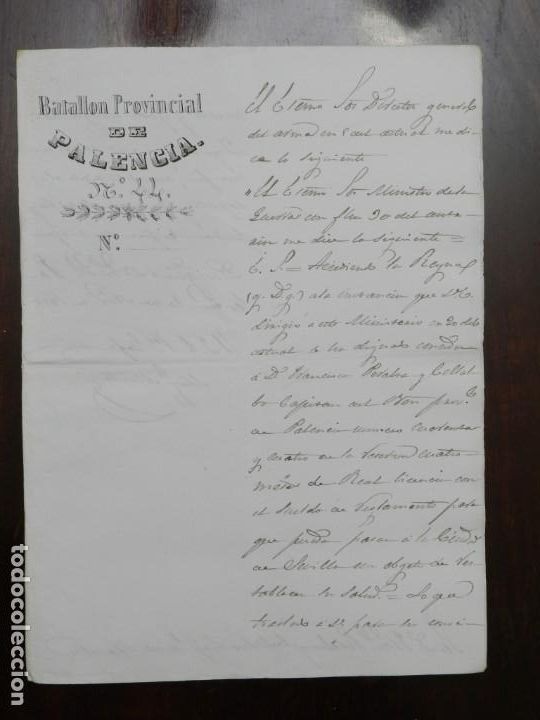 Batallon Provincial
DE
PALENCIA.
N.º 44.
N.º
El Exmo Sor Director general
del arma en 8 del actual me di-
ce lo siguiente
"El Exmo Sor Ministro de la
Guerra con fha 30 del
me dice lo siguiente =
E. S. = Accediendo la Reyna
(q. D. g.) a la instancia que V. E.
dirigió a este Ministerio en 20 del
actual se ha dignado conceder
á Dn Francisco Peralta y
Capitan del Bon provl
de Palencia numero cuarenta
y cuatro de la Reserva cuatro
meses de Real licencia con
el sueldo de Reglamento para
que pueda pasar á la Ciudad
de Sevilla con objeto de res-
tablecer su salud. = Lo que
traslado a V. para su conoci-
todocoleccion.net